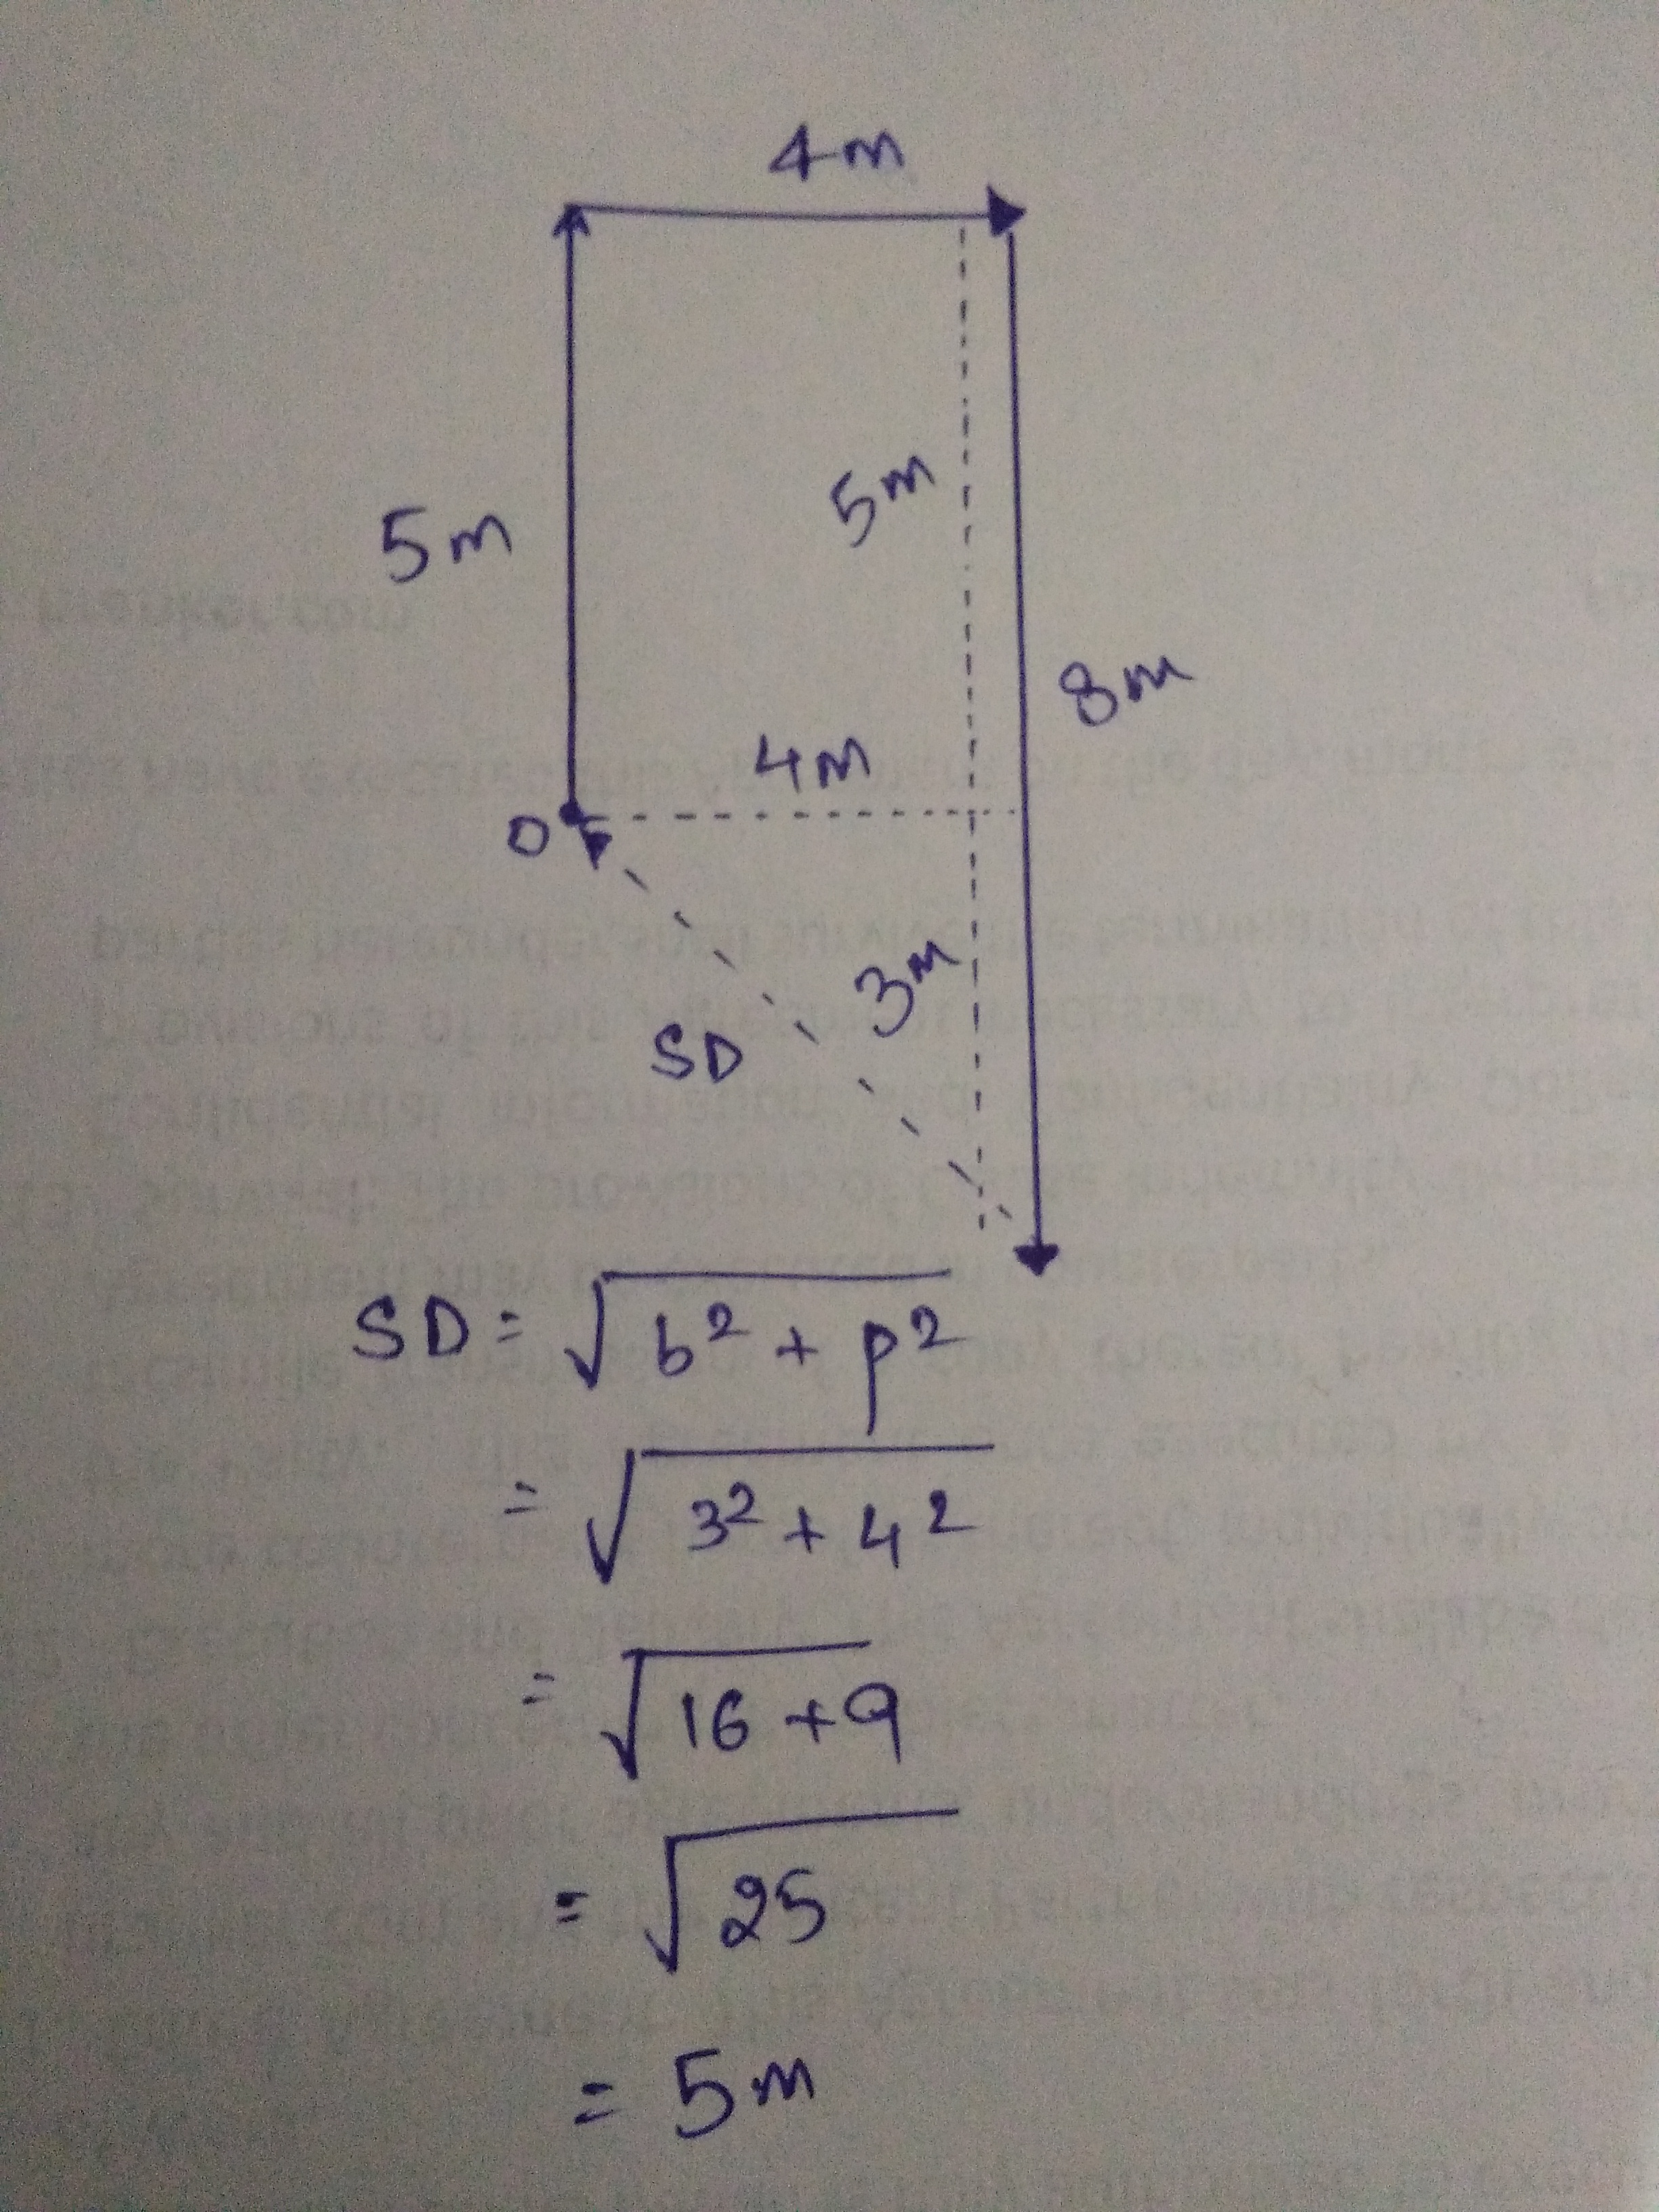 4m
5m
5m
8m
4m
O
3m
SD
SD = √b² + p²
= √3² + 4²
= √16 + 9
= √25
= 5m